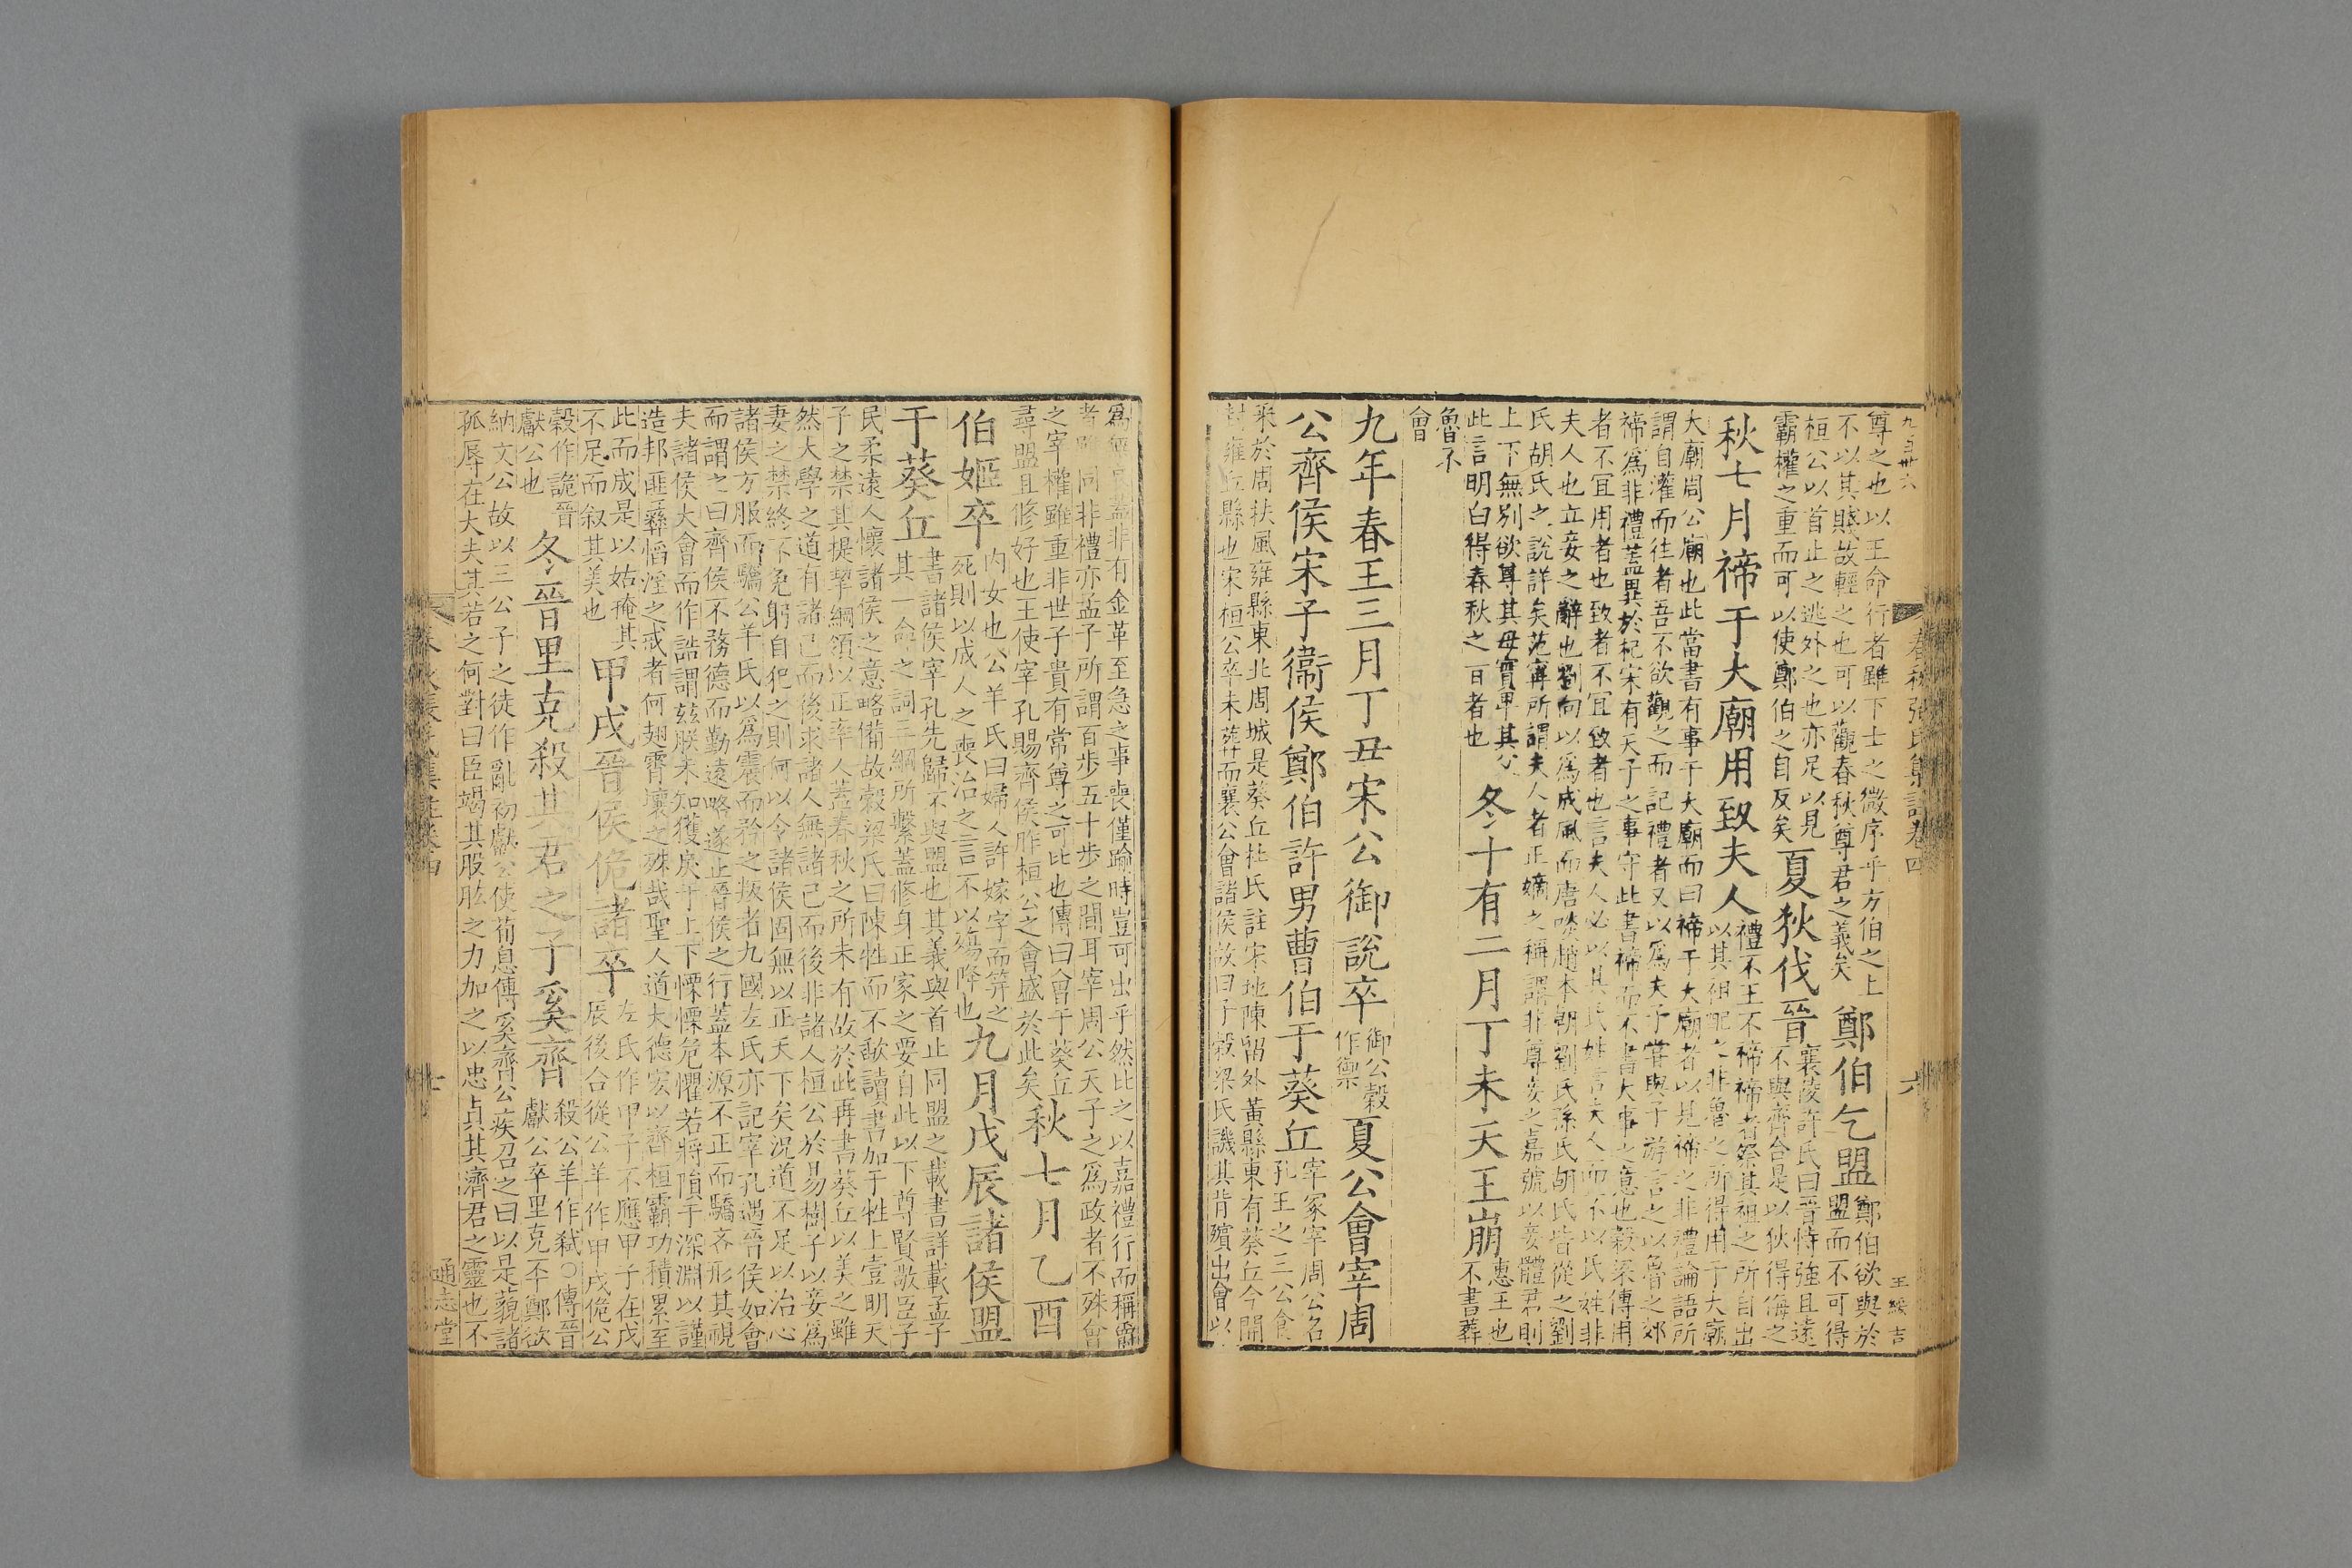 九百卅六
春秋張氏集註卷四
六
王綏吉
尊之也以王命行者雖下士之微序乎方伯之上
不以其賤故輕之也可以觀春秋尊君之義矣
鄭伯乞盟
鄭伯欲與於
盟而不可得
桓公以首止之逃外之也亦足以見
霸權之重而可以使鄭伯之自反矣
夏狄伐晉
襄陵許氏曰晉恃強且遠
不與齊合是以狄得侮之
秋七月禘于大廟用致夫人
禮不王不禘禘者祭其祖之所自出
以其祖配之非魯之所得用于大廟
大廟周公廟也此當書有事于大廟而曰禘于大廟者以見禘之非禮論語所
謂自灌而往者吾不欲觀之而記禮者又以爲夫子嘗與子游言之以魯之郊
禘爲非禮蓋異於杞宋有天子之事守此書禘而不書大事之意也穀梁傳用
者不宜用者也致者不宜致者也言夫人必以其氏姓言夫人而不以氏姓非
夫人也立妾之辭也劉向以爲成風而唐啖趙本朝劉氏孫氏胡氏皆從之劉
氏胡氏之說詳矣范甯所謂夫人者正嫡之稱謂非尊妾之嘉號以妾體君則
上下無別欲尊其母實卑其父
此言明白得春秋之旨者也
冬十有二月丁未天王崩
惠王也
不書葬
魯不
會
九年春王三月丁丑宋公御說卒
御公穀
作禦
夏公會宰周
公齊侯宋子衞侯鄭伯許男曹伯于葵丘
宰冢宰周公名
孔王之三公食
采於周扶風雍縣東北周城是葵丘杜氏註宋地陳留外黃縣東有葵丘今開
封雍丘縣也宋桓公卒未葬而襄公會諸侯故曰子穀梁氏譏其背殯出會以
爲無哀蓋非有金革至急之事喪僅踰時豈可出乎然比之以嘉禮行而稱爵
者雖同非禮亦孟子所謂百步五十步之間耳宰周公天子之爲政者不殊會
之宰權雖重非世子貴有常尊之可比也傳曰會于葵丘
尋盟且修好也王使宰孔賜齊侯胙桓公之會盛於此矣
秋七月乙酉
伯姬卒
內女也公羊氏曰婦人許嫁字而笄之
死則以成人之喪治之言不以殤降也
九月戊辰諸侯盟
于葵丘
書諸侯宰孔先歸不與盟也其義與首止同盟之載書詳載孟子
其一命之詞三綱所繫蓋修身正家之要自此以下尊賢敬臣子
民柔遠人懷諸侯之意略備故穀梁氏曰陳牲而不歃讀書加于牲上壹明天
子之禁其提挈綱領以正率人蓋春秋之所未有故於此再書葵丘以美之雖
然大學之道有諸己而後求諸人無諸己而後非諸人桓公於易樹子以妾爲
妻之禁終不免躬自犯之則何以令諸侯固無以正天下矣況道不足以治心
諸侯方服而驕公羊氏以爲震而矜之叛者九國左氏亦記宰孔遇晉侯如會
而謂之曰齊侯不務德而勤遠略遂止晉侯之行蓋本源不正而驕吝形其視
夫諸侯大會而作誥謂茲朕未知獲戾于上下慄慄危懼若將隕于深淵以謹
造邦匪彝慆淫之戒者何翅霄壤之殊哉聖人道大德宏以齊桓霸功積累至
此而成是以姑掩其
不足而叙其美也
甲戌晉侯佹諸卒
左氏作甲子不應甲子在戊
辰後合從公羊作甲戌佹公
穀作詭晉
獻公也
冬晉里克殺其君之子奚齊
殺公羊作弑○傳晉
獻公卒里克丕鄭欲
納文公故以三公子之徒作亂初獻公使荀息傅奚齊公疾召之曰以是藐諸
孤辱在大夫其若之何對曰臣竭其股肱之力加之以忠貞其濟君之靈也不
春秋張氏集註卷四
七
通志堂